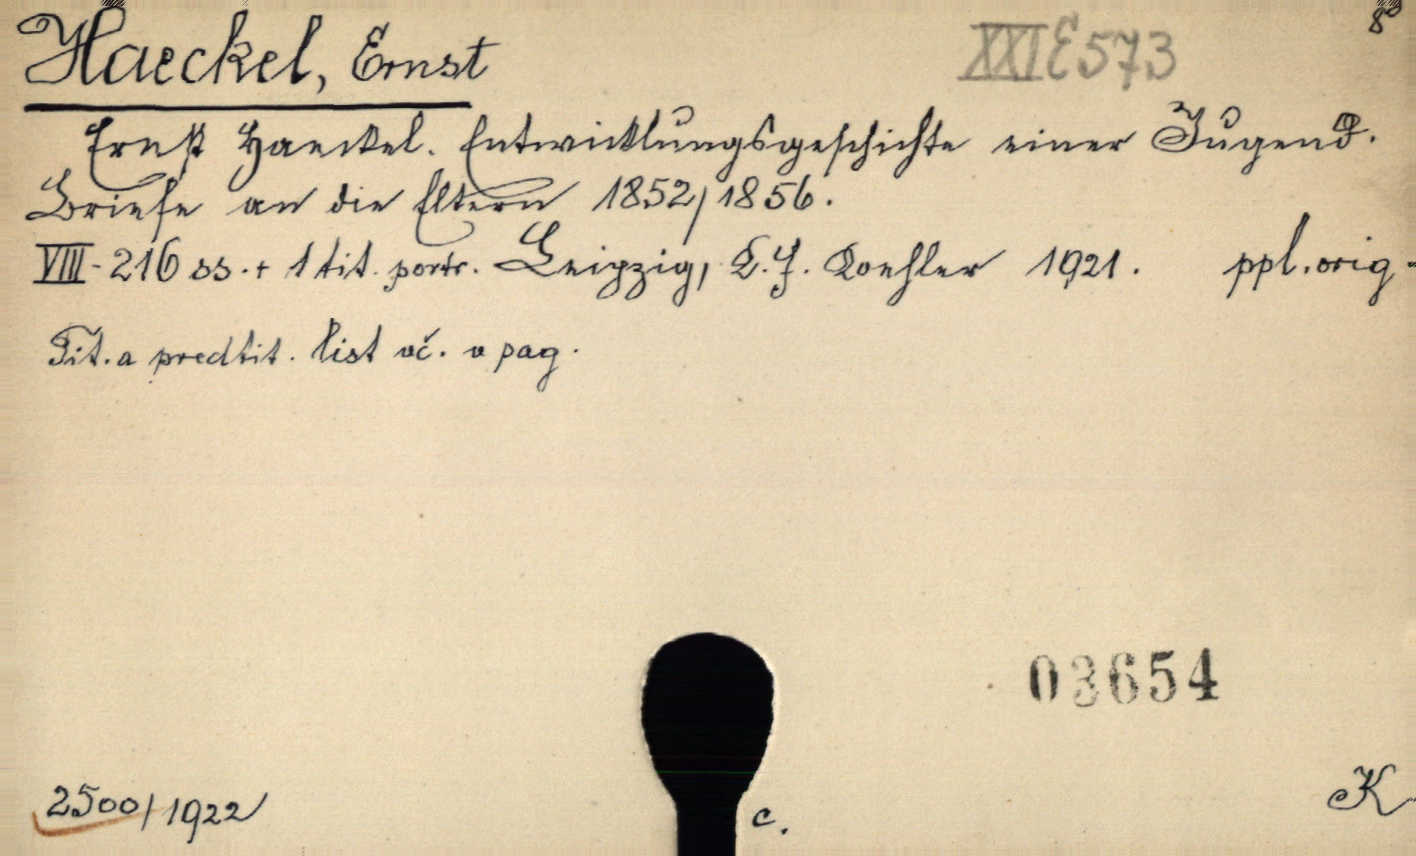 Haeckel, Ernst XXI E 573 8°
Ernst Haeckel. Entwicklungsgeschichte einer Jugend.
Briefe an die Eltern 1852/1856.
VIII-216 ss. + 1 tit. portr. Leipzig, K. F. Koehler 1921. ppl. orig.
Tit. a predtit. list vč. v pag.
03654
2500/1922 c. K